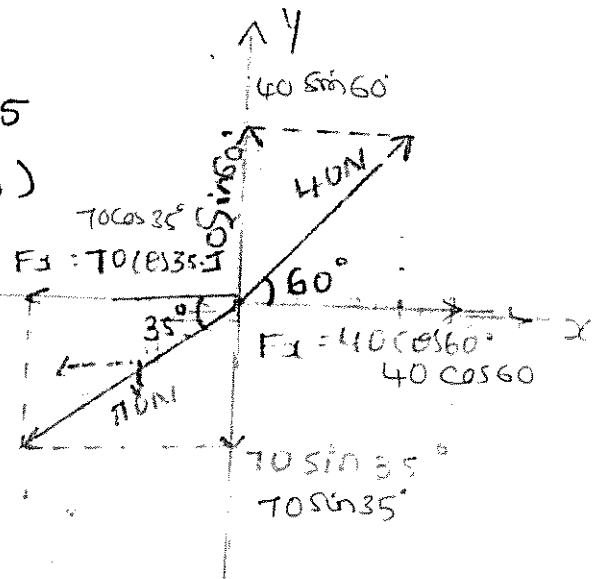 y
40 Sin60°
5
)
40N
70Cos35°
Fx = 70Cos35°
60°
35°
x
Fx = 40Cos60°
40 Cos60
70N
70 Sin 35°
70 Sin35°